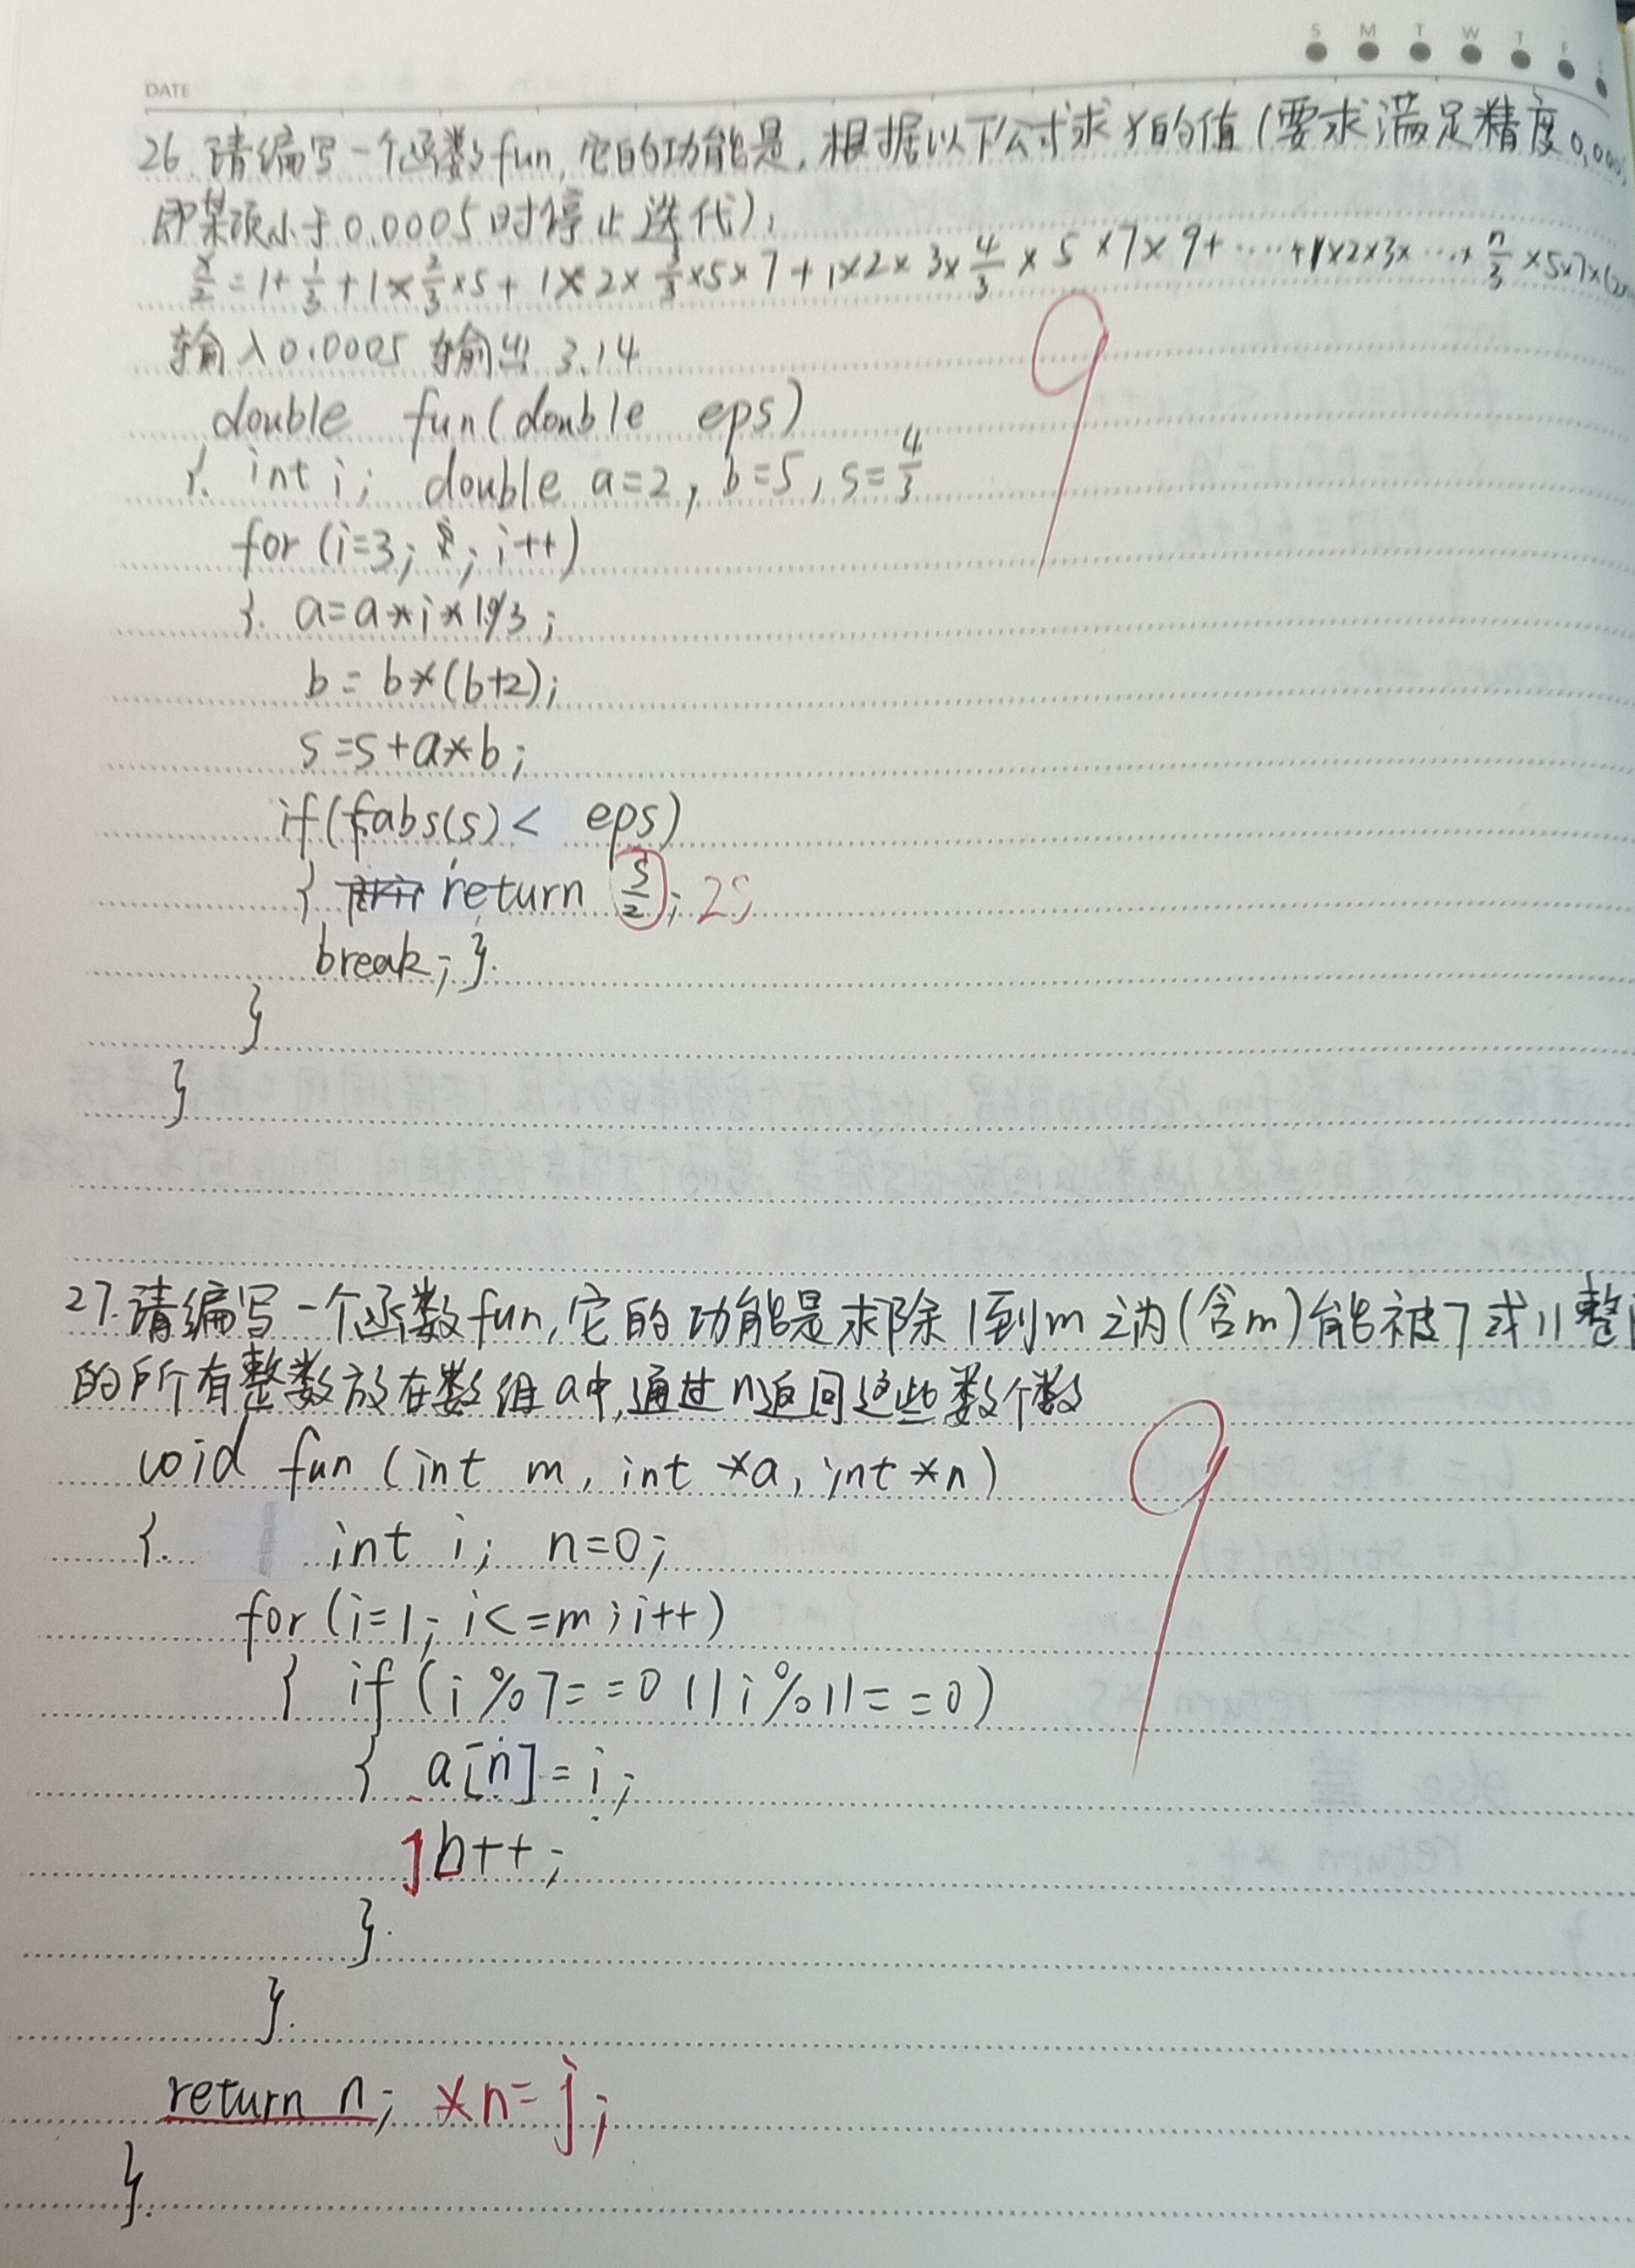 S M T W T F S
DATE
26. 请编写一个函数fun, 它的功能是, 根据以下公式求X的值(要求满足精度0.000
即某项小于0.0005时停止迭代):
x/2 = 1 + 1/3 + 1×2/3×5 + 1×2×3/3×5×7 + 1×2×3×4/3×5×7×9 + ····· + 1×2×3×···×n/3×5×7×(2n
输入0.0005 输出 3.14
double fun(double eps)
{ int i; double a=2, b=5, s=4/3
for (i=3; ; i++)
{ a=a*i*1.0/3;
b = b*(b+2);
s=s+a*b;
if(fabs(s)< eps)
{ return s/2; 2S
break; }
}
}
27. 请编写一个函数fun, 它的功能是求除1到m之内(含m)能被7或11整
的所有整数放在数组a中, 通过n返回这些数个数
void fun (int m, int *a, int *n)
{ int i; n=0;
for (i=1; i<=m; i++)
{ if (i%7==0 || i%11==0)
{ a[n]=i;
j n++;
}
}
return n; *n=j;
}